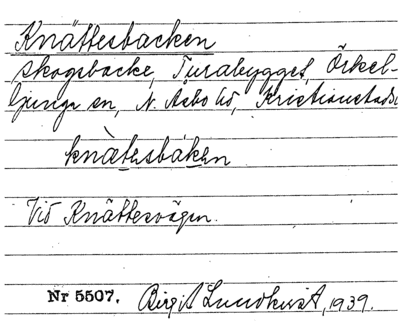 Knättesbacken
skogsbacke, Turabygget, Örkel-
ljunga sn, N. Åsbo hd, Kristianstads
knàtesbáken
Vid Knättesvägen.
Nr 5507. Birgit Lundkvist, 1939.